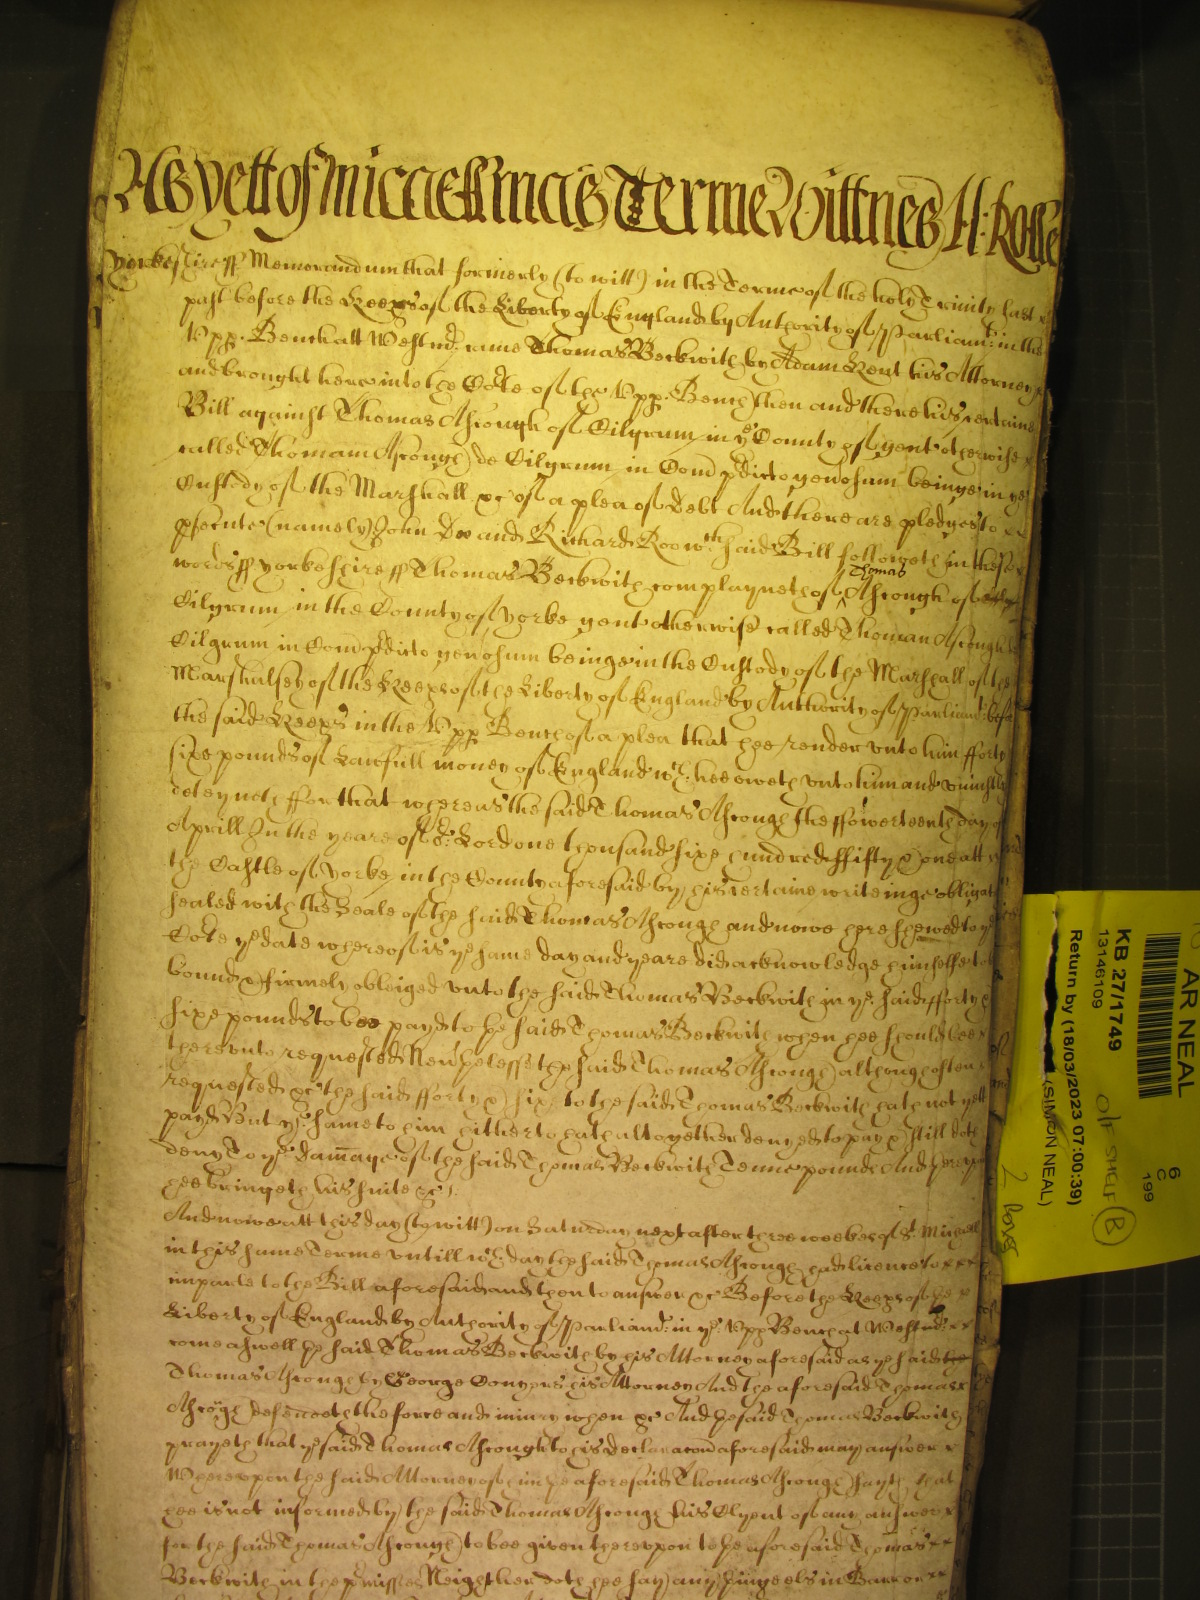 As yett of Micaellmas Terme Wittnes H: Rolle
Yorkeshire ss Memorandum that formerly (to witt) in the Terme of the holy Trinity last x
past before the Keeps of the Liberty of England by Authority of Parliamt: in the
Vpp. Bench att Westmr: came Thomas Beckwith by Adam Kent his Attorney x
and brought here into the Cote of the Vpp. Bench then and there his certaine
Bill against Thomas Ascough of Oilgrum in ye County of gent otherwise x
called Thomam Ascough de Oilgrum in Com pdicto generosum beinge in ye
Custody of the Marshall &c of a plea of Debt And there are pledges to
psecute (namely) John Doo and Richard Roo wch said Bill followeth in these x
words ss Yorkeshire ss Thomas Beckwith complayneth of Thomas Ascough of
Oilgrum in the County of Yorke gent otherwise called Thomam Ascough
Oilgrum in Com pdicto generosum beinge in the Custody of the Marshall of the
Marshalsey of the Keeps of the Liberty of England by Authority of Parliamt: befo
the said Keeps in the Vpp Bench of a plea that hee render vnto him fforty
sixe pounds of Lawfull money of England wch: hee oweth vnto him and vniustly
deteyneth ffor that whereas the said Thomas Ascough the ffowerteenth day of
Aprill In the yeare of or: Lord one thousand sixe hundred ffifty & one att
the Castle of Yorke in the County aforesaid by his certaine writeinge obligat
sealed with the Seale of the said Thomas Ascough and nowe here shewed to ye
Cote ye date whereof is ye same day and yeare did acknowledge himselfe to
bound & firmely obleiged vnto the said Thomas Beckwith in ye said fforty &
sixe pounds to bee payd to the said Thomas Beckwith when hee should bee x
therevnto requested Neuthelesse the said Thomas Ascough although often
requested &c the said fforty & six to the said Thomas Beckwith hath not yett
payd But ye same to him hitherto hath altogether denyed to pay & still doth
deny To ye damage of the said Thomas Beckwith Tenne pounds And
hee bringeth his suite &c
And nowe att this day (to witt) on Saturday next after three weekes of St Michaell
in this same Terme vntill wch day the said Thomas Ascough had licence to x x x
imparle to the Bill aforesaid and then to answer &c Before the Keeps of the x
Liberty of England by Authority of Parliamt: in ye Vpp Bench at Westmr: x x
come aswell the said Thomas Beckwith by his Attorney aforesaid as ye said
Thomas Ascough by George Conyers his Attorney And the aforesaid Thomas x
Ascough defendeth the force and iniury when &c And the said Thomas Beckwith
prayeth that ye said Thomas Ascough to his declaracon aforesaid may answer x
Wherevpon the said Attorney of him the aforesaid Thomas Ascough sayth that
hee is not informed by the said Thomas Ascough his Clyent of any answer x
for the said Thomas Ascough to bee given therevpon to the aforesaid Thomas x x
Beckwith in the pmisses Neigther doth hee say any thinge els in Barr x x
AR NEAL
KB 27/1749
13146109
Return by (18/03/2023 07:00:39)
(SIMON NEAL)
6
C
199
O/F SHELF
B
2 boxes